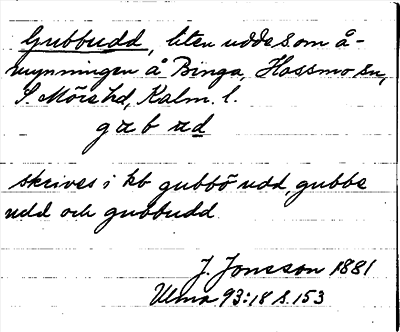 Gubbudd, liten udde s. om å-
mynningen å Binga, Hossmo sn,
S. Möre hd, Kalm. l.
g a b a d
skrives i kb gubbö udd, gubbe
udd och gubbudd
J. Jonsson 1881
Ulma 93:18 s. 153